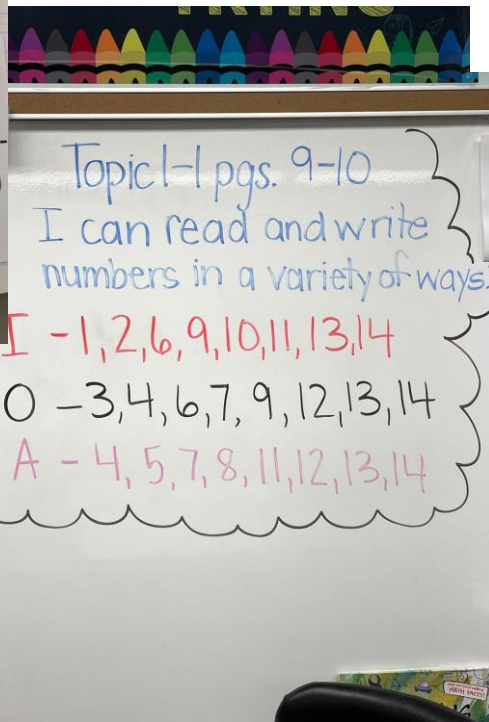 Topic 1-1 pgs. 9-10
I can read and write
numbers in a variety of ways.
I - 1,2,6,9,10,11,13,14
O - 3,4,6,7,9,12,13,14
A - 4,5,7,8,11,12,13,14
MATH PACES!